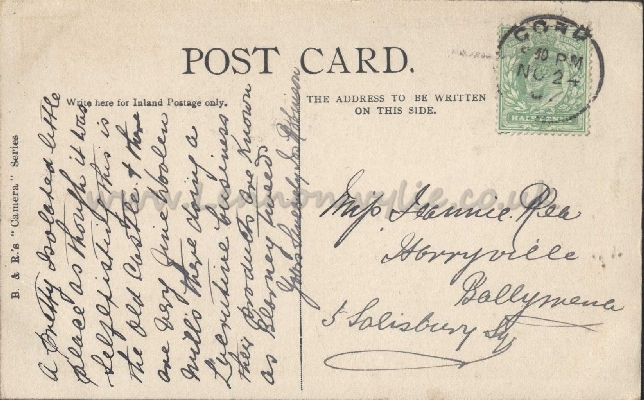 POST CARD.
Write here for Inland Postage only.
THE ADDRESS TO BE WRITTEN
ON THIS SIDE.
B. & R.'s "Camera" Series
A Pretty Isolated little
place as though it was
Selfexisting this is
the old Castle & there
one very fine woolen
mills there doing a
Lucrative business
their products are known
as Blarney tweeds
Yours Sincerely
Miss Jeannie Rea
Harryville
Ballymena
5 Salisbury Sq
CORK
PM
NO 24
HALF PENNY
www.Lennonwylie.co.uk